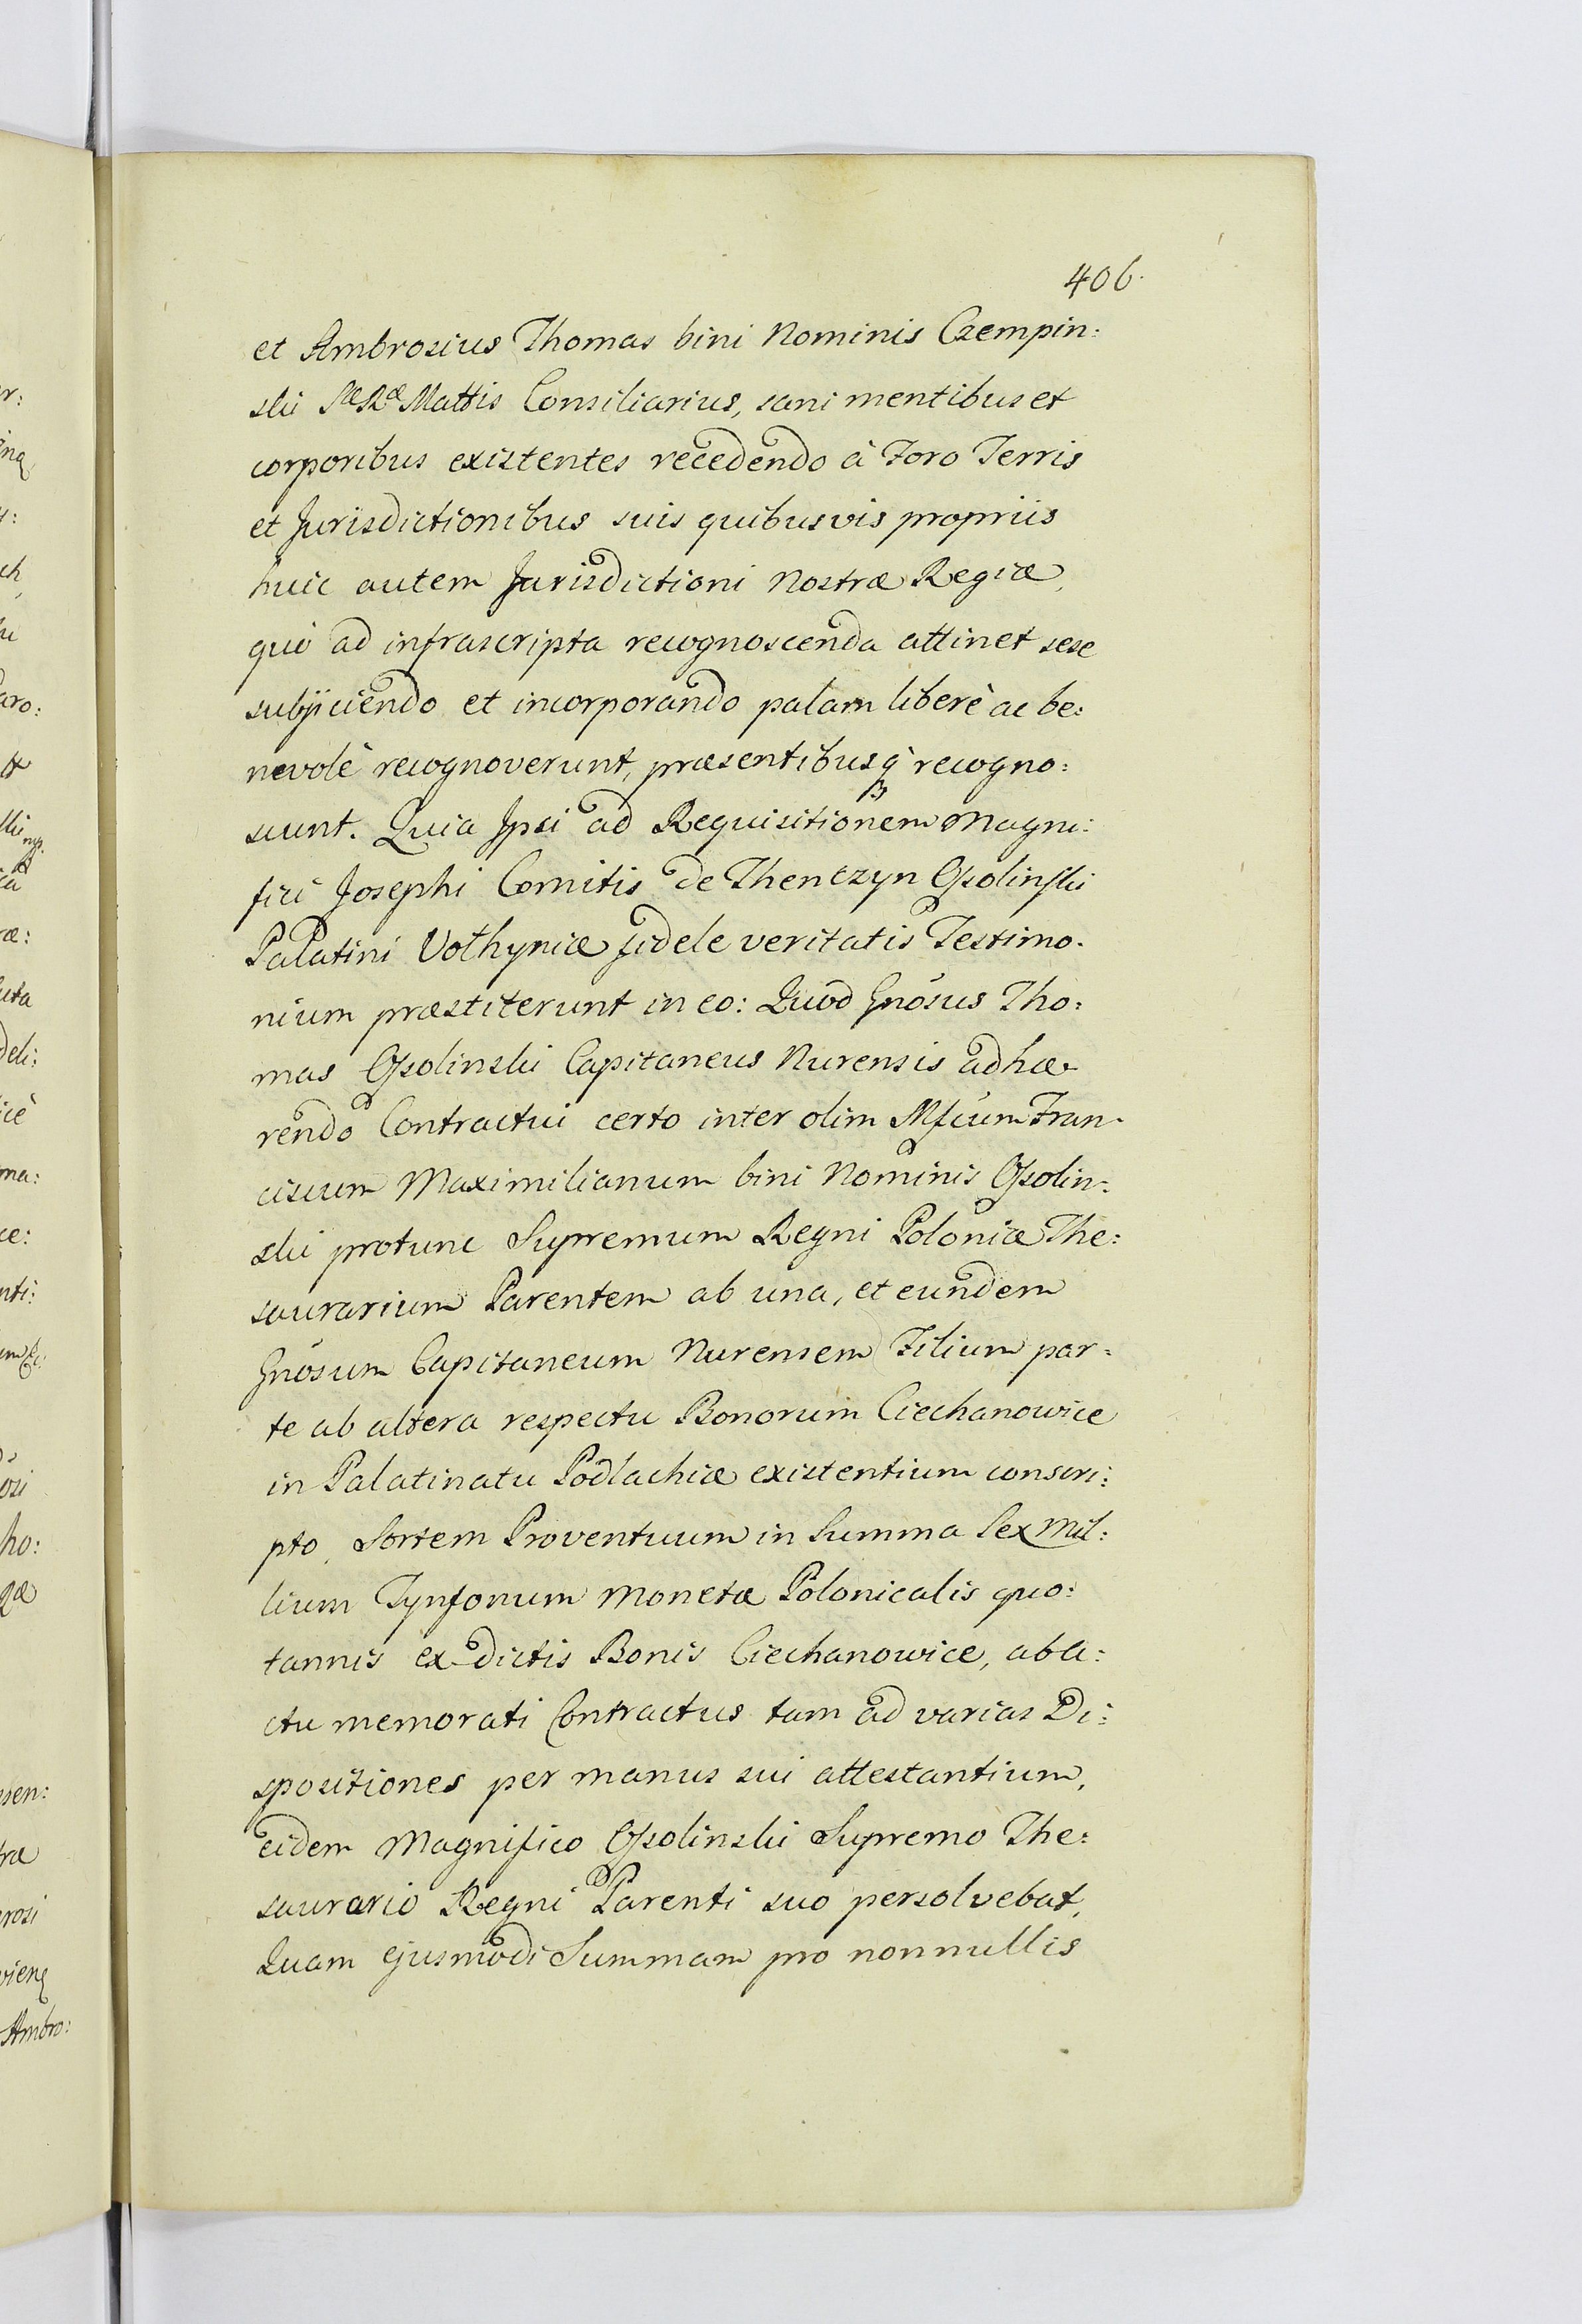 406.
et Ambrosius Thomas bini Nominis Czempin:
ski Sæ Ræ Mattis Consiliarius, sani mentibus et
corporibus existentes recedendo à Foro Terris
et Jurisdictionibus suis quibusvis propriis
huic autem Jurisdictioni Nostræ Regiæ,
quò ad infrascripta recognoscenda attinet sese
subjiciendo et incorporando palam liberè ac be:
nevolè recognoverunt, præsentibusq́ recogno:
scunt. Quia Ipsi ad Requisitionem Magni:
fici Josephi Comitis de Thenczyn Ossolinski
Palatini Volhyniæ fidele veritatis Testimo:
nium præstiterunt in eo: Quod Gnósus Tho:
mas Ossolinski Capitaneus Nurensis adhæ-
rendo Contractui certo inter olim Mfícum Fran-
ciscum Maximilianum bini Nominis Ossolin:
ski protunc Supremum Regni Poloniæ The:
saurarium Parentem ab una, et eundem
Gnósum Capitaneum Nurensem Filium par:
te ab altera respectu Bonorum Ciechanowice
in Palatinatu Podlachiæ existentium conscri:
pto, Sortem Proventuum in Summa Sex Mil:
lium Tynfonum Monetæ Polonicalis quo:
tannis ex dictis Bonis Ciechanowice, ab a:
ctu memorati Contractus tam ad varias Di:
spositiones per manus sui attestantium,
eidem Magnifico Ossolinski Supremo The:
saurario Regni Parenti suo persolvebat,
Quam ejusmodi Summam pro nonnullis